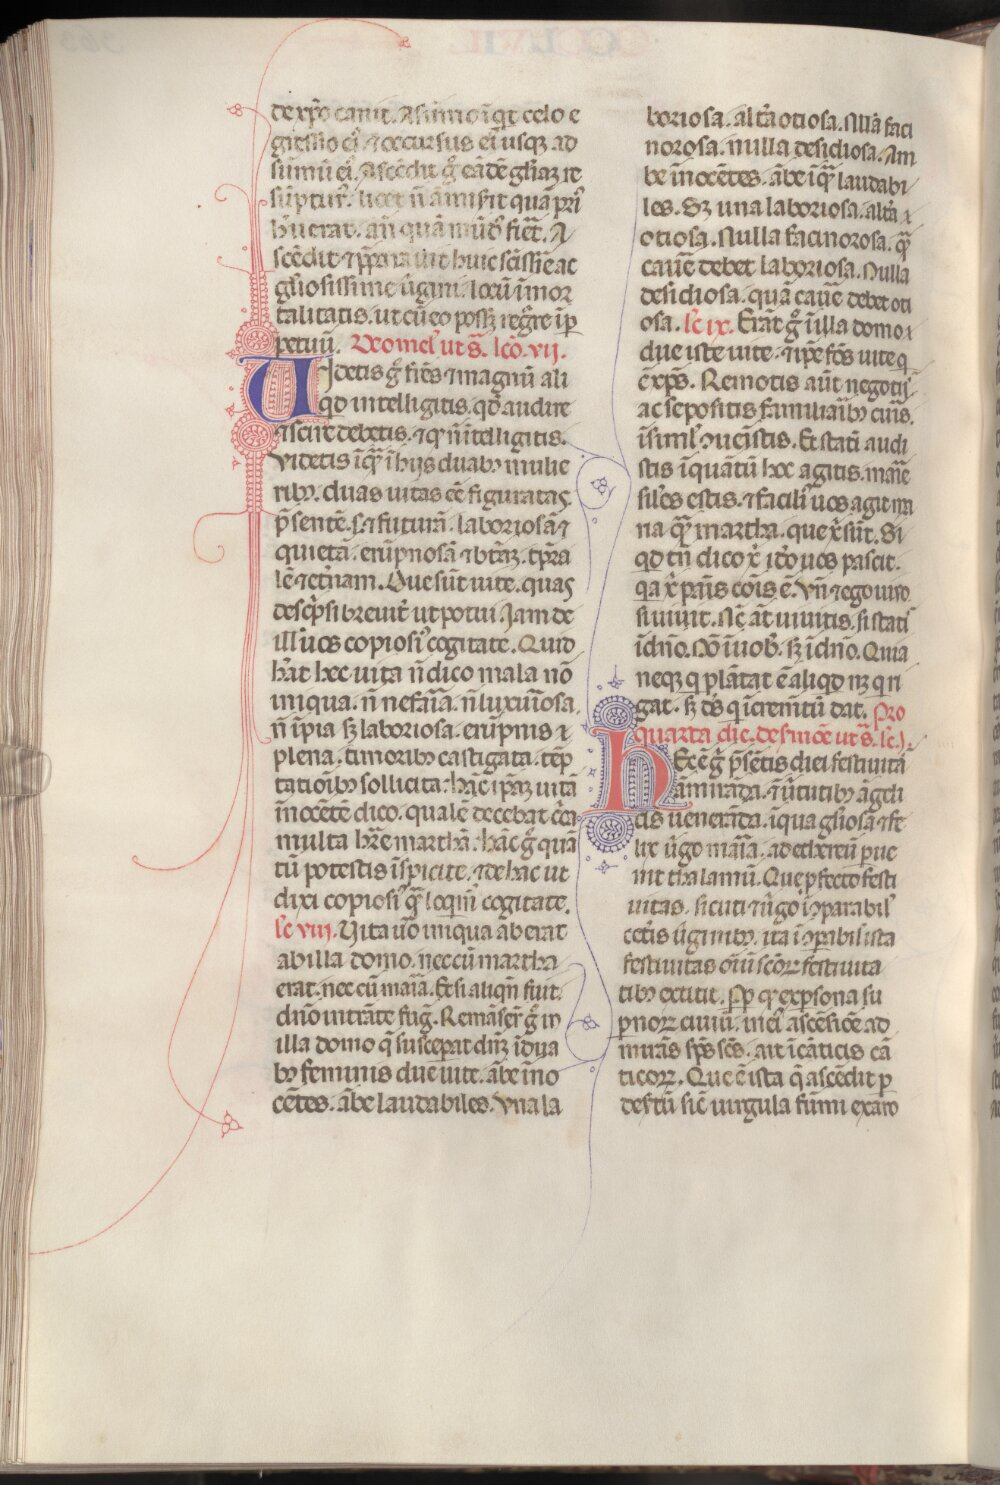 de xp̄o canit. A sūmo īqt celo e
gressio ei᷒. ⁊ occursus ei᷒ usqꝫ ad
sūmū ei᷒. Ascēdit g̊ eādē gl̄iaꝫ re
sūptur᷒. licet n̄ āmisit quā pri᷒
h̄uerat. an̄ quā mūd᷒ fiēt. A
scēdit ⁊ p̄parauit huic scīssīe ac
gl̄iosissime ūgini. locū īmor
talitatis. ut cū eo possꝫ reg̊re īp̱
petuū. De omel᷒ ut s̄. lc̄o. vij.
Uidetis g̊ fr̄es ⁊ magnū ali
qd intelligitis. qd̄ audire
⁊ scire debetis. ⁊ qͥ n̄ ītelligitis.
Videtis īqͣ ī hijs duabꝫ mulie
ribꝫ. duas uitas ēe figuratas.
p̄sentē. s. ⁊ futurā. laboriosā ⁊
quietā. erūpnosā ⁊ btāꝫ. tp̄ra
lē ⁊ et̄nam. Que sūt uite. quas
desc̄psi breuit᷒ ut potui. Jam de
ill᷒ uos copiosi᷒ cogitate. Quid
h̄at hec uita n̄ dico mala nō
iniqua. n̄ nefāia. n̄ luxuīosa.
n̄ īpia sꝫ laboriosa. erūpnis ⁊
plena. timoribꝫ castigata. tēp
tatiōibꝫ sollicita. hāc ip̄aꝫ uitā
īnocētē dico. qualē decebat
multa hr̄e marthā. hāc g̊ quā
tū potestis īspicite. ⁊ de hac ut
dixi copiosi᷒ qͣ loqm̄ cogitate.
lc̄ viij. Uita ūo iniqua aberat
ab illa domo. nec cū martha
erat. nec cū maīa. Et si aliqn̄ fuit.
dn̄o intrāte fug̊. Remāser̄t g̊ in
illa domo q̄ susceperat dn̄ꝫ ī dua
bꝫ feminis due uite. ābe īno
cētes. ābe laudabiles. Vna la
boriosa. alt̄a otiosa. Nulla faci
norosa. nulla desidiosa. Am
be īnocētes. ābe īqͣ laudabi
les. Sꝫ una laboriosa. alt̄a ⁊
otiosa. Nulla facinorosa. qͣ
cauē debet laboriosa. Nulla
desidiosa. quā cauē debet oti
osa. lc̄ ix. Erāt g̊ ī illa domo ⁊
due iste uite. ⁊ ip̄e fōs uite q
ē xp̄s. Remotis aūt negotij᷒
ac sepositis familiarībꝫ curis.
Et statī audi
stis īquātū hec agitis. maīe
siles estis. ⁊ facili᷒ uos agit ma
na qͣ martha. que xr̄ sūt. Si
qd tn̄ dico xr̄ ido uos pascit.
qa xr̄ panis cōis ē. vn̄ ⁊ ego uiuo
si uiuit. Nc̄ āt uiuitis. si stati᷒
ī dn̄o. Nō ī uob᷒. sꝫ ī dn̄o. Quia
neqꝫ q plātat ē aliqd nꝫ q ri
gat. sꝫ ds̄ q īcrem̄tū dat. Pro
quarta die. de s̄moē ut s̄. lc̄ j.
Hec ē g̊ p̄sētis diei festiuitas
āmirāda. ⁊ ūtutibꝫ āgeli
cis uenerāda. ī qua gl̄iosa ⁊ fe
lix ūgo maīa. ad ethereū pue
nit thalamū. Que pfecto festi
uitas. sicuti ⁊ ūgo īparabil᷒
cet̄is ūginibꝫ. ita īparabil᷒ ista
festiuitas oīū scōrꝝ festiuita
tibꝫ extitit. Pp̄ qͥ ex psona su
pnorꝝ ciuiū. in ei᷒ ascēsiōe ad
mirās sp̄s scs̄. ait ī cāticis cā
ticorꝝ. Que ē ista q̄ ascēdit p
desertū sic̄ uirgula fumi ex aro